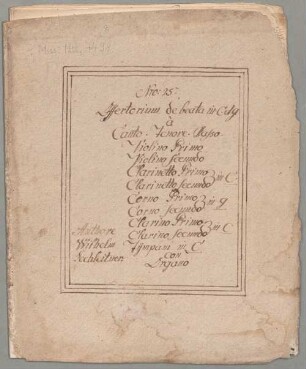 Mus. Ms. 
Nro: 25.
Offertorium de beata in C dg
à
Canto. Tenore. Basso.
Violino Primo
Violino secundo
Clarinetto Primo
Clarinetto secundo } in C
Corno Primo
Corno secundo } in g
Clarino Primo
Clarino secundo } in C
Tympani in C
con
Organo
Authore
Wilhelm